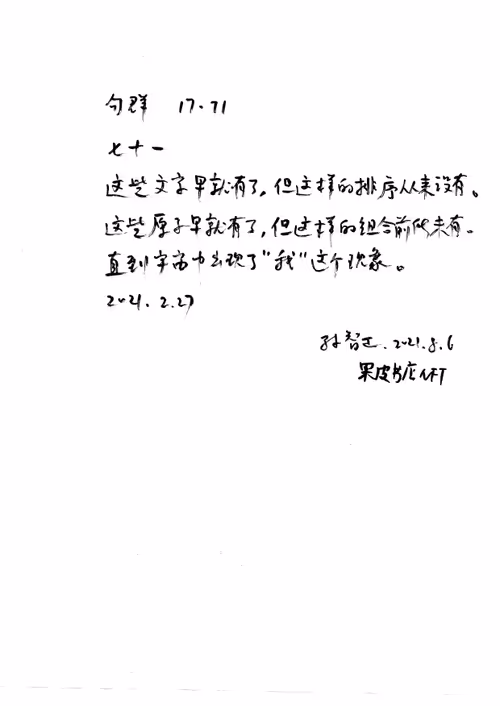 句群 17.71
七十一
这些文字早就有了，但这样的排序从来没有。
这些原子早就有了，但这样的组合前所未有。
直到宇宙中出现了“我”这个现象。
2021.2.27
孙智正.2021.8.6
果皮书店NFT